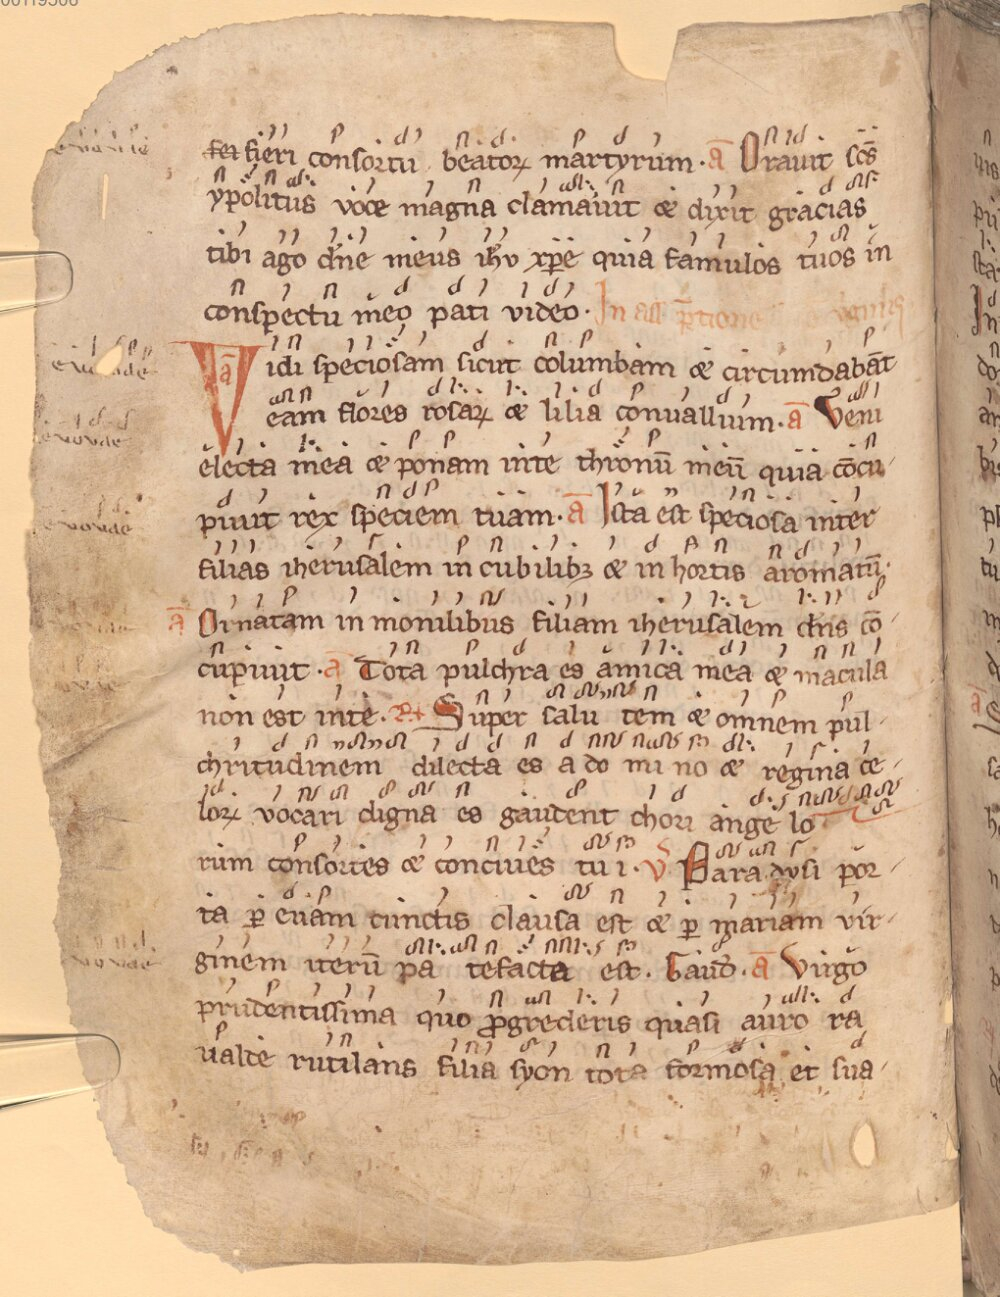 fieri consortiū beatoꝝ martyrum · a̅ Orauit sc̅s
ypolitus uoce magna clamauit & dixit gracias
tibi ago dn̅e meus ihu xp̅e quia famulos tuos in
conspectu meo pati uideo · In ass
a̅ Vidi speciosam sicut columbam & circumdabant
eam flores rosaꝝ & lilia conuallium · a̅ Veni
electa mea & ponam inte thronū meū quia cōcu
piuit rex speciem tuam · a̅ Ista est speciosa inter
filias iherusalem in cubilibꝫ & in hortis aromatū ·
a̅ Ornatam in monilibus filiam iherusalem dn̅s cō
cupiuit · a̅ Tota pulchra es amica mea & macula
non est inte · R Super salu tem & omnem pul
chritudinem dilecta es a do mi no & regina ce
loꝝ uocari digna es gaudent chori ange lo
rum consortes & conciues tu i · V̅ Para dysi por
ta ꝑ euam cunctis clausa est & ꝑ mariam uir
ginem iterū pa tefacta est · Gaud̅ · a̅ Virgo
prudentissima quo ꝓgrederis quasi auro ra
ualde rutilans filia syon tota formosa et sua